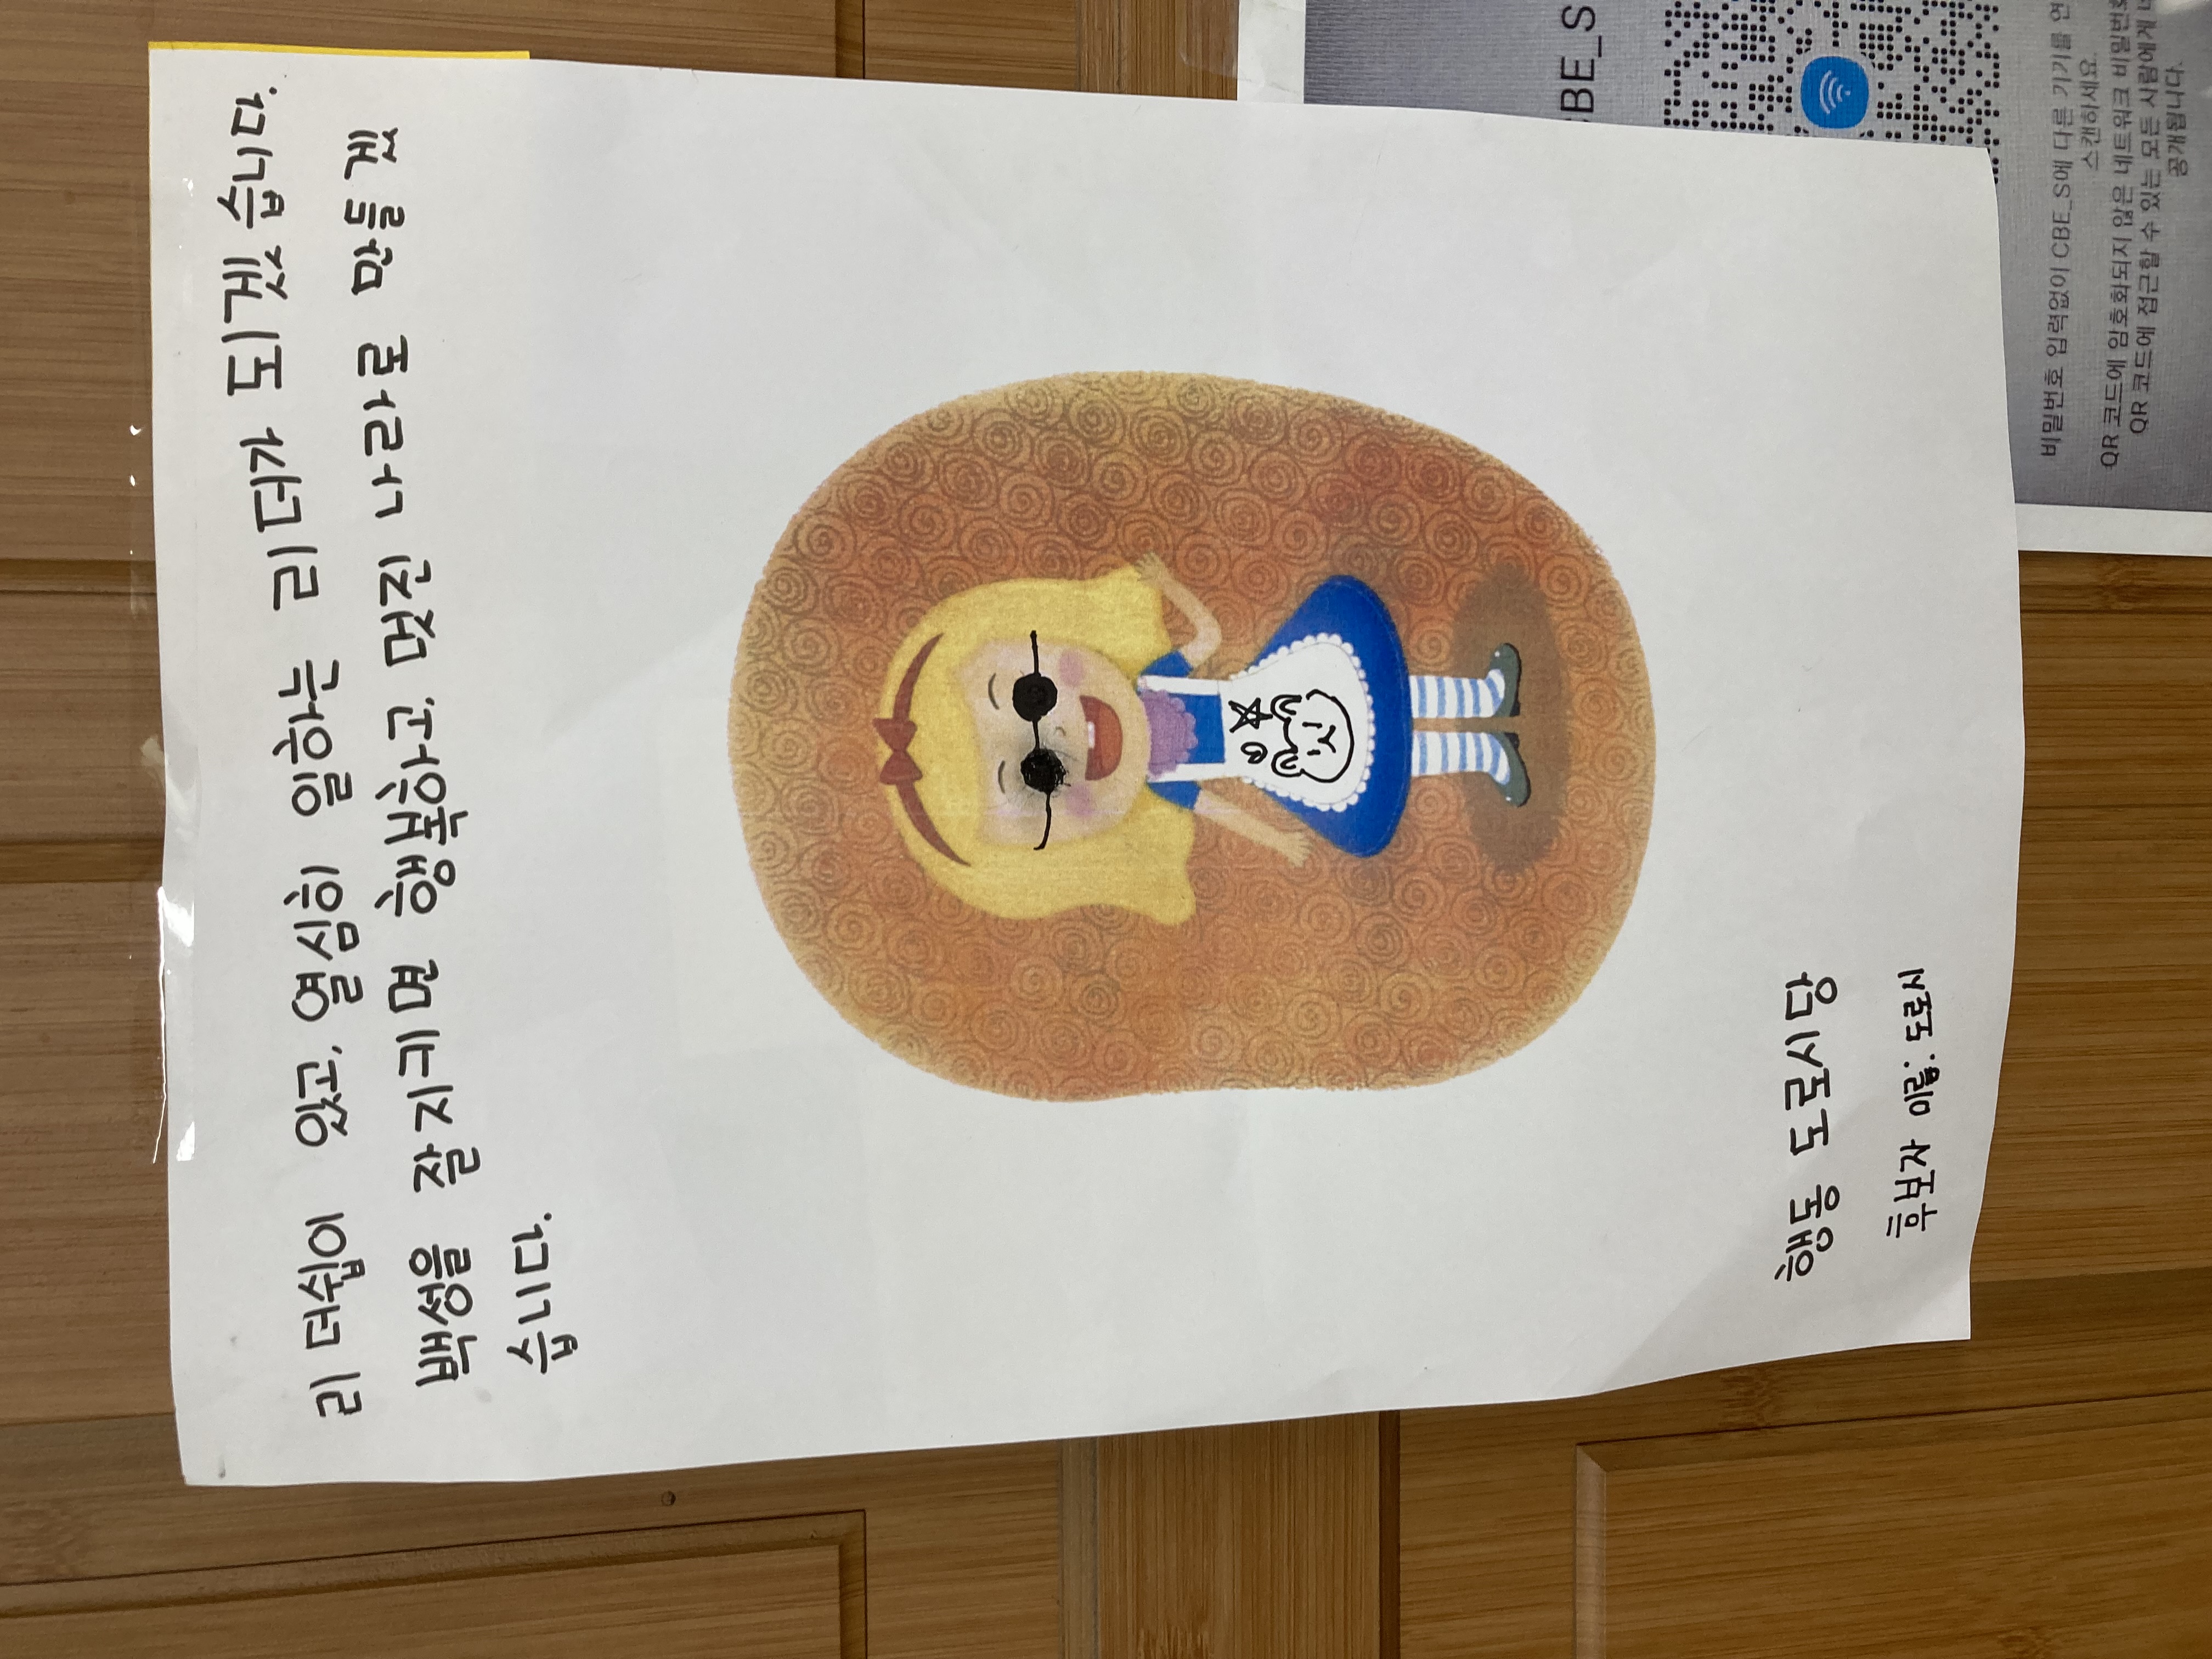 리더쉽이 있고, 열심히 일하는 리더가 되겠습니다.
백성을 잘지키며 행복하고, 멋진 나라로 만들겠
습니다.
행동 도로시임
후보자 이름: 도로시
BE_S
비밀번호 입력없이 CBE_S에 다른 기기를 연
스캔하세요.
QR 코드에 암호화되지 않은 네트워크 비밀번호
QR 코드에 접근할 수 있는 모든 사람에게
공개됩니다.